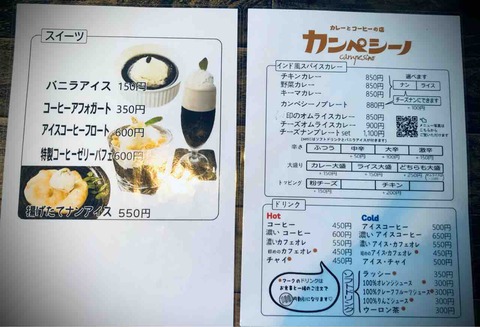 スイーツ
バニラアイス 150円
コーヒーアフォガート 350円
アイスコーヒーフロート 600円
特製コーヒーゼリーパフェ 600円
揚げたてナンアイス 550円
カレーとコーヒーの店
カンペシーノ
campesino
インド風スパイスカレー
チキンカレー 850円
野菜カレー 850円
キーマカレー 850円
カンペシーノプレート 880円
選べます
ナン ライス
チーズナンにできます
+100円
印のオムライスカレー 850円
チーズオムライスカレー 900円
チーズナンプレートset 1,100円
メニュー写真は
こちらから
ご覧いただけます
辛さ ふつう 中辛 大辛 激辛
+50円 +100円
大盛り カレー大盛 ライス大盛 どちらも大盛
+150円 +150円 +250円
トッピング 粉チーズ チキン
+150円 +200円
ドリンク
Hot
コーヒー 450円
濃いコーヒー 600円
濃いカフェオレ 550円
カフェオレ* 450円
チャイ* 450円
Cold
アイスコーヒー 500円
濃いアイスコーヒー 650円
濃いアイス・カフェオレ 600円
アイス・カフェオレ 500円
アイス・チャイ 500円
ラッシー* 350円
100%オレンジジュース* 300円
100%グレープフルーツジュース* 300円
100%りんごジュース* 300円
ウーロン茶* 300円
*マークのドリンクは
お食事と一緒のご注文で